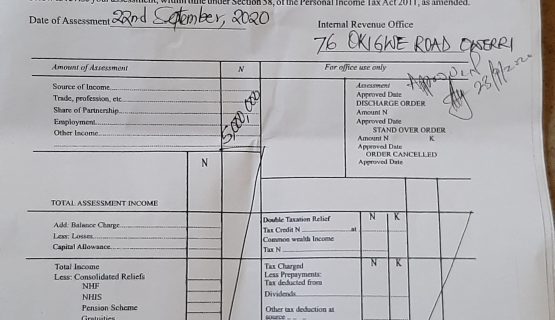 Date of Assessment 22nd September, 2020
Internal Revenue Office
76 OKIGWE ROAD OWERRI
Amount of Assessment
N
For office use only
Source of Income
Trade, profession, etc
Share of Partnership
Employment
Other Income
5,000,000
Assessment
Approved Date
DISCHARGE ORDER
Amount N
Approved Date
STAND OVER ORDER
Amount N K
Approved Date
ORDER CANCELLED
Approved Date
Approved
28/9/2020
N
TOTAL ASSESSMENT INCOME
Add: Balance Charge
Less: Losses
Capital Allowance
Double Taxation Relief N K
Tax Credit N at
Common wealth Income
Tax N
Total Income
Less: Consolidated Reliefs
NHF
NHIS
Pension Scheme
Gratuities
Tax Charged N K
Less Prepayments:
Tax deducted from
Dividends
Other tax deduction at
source